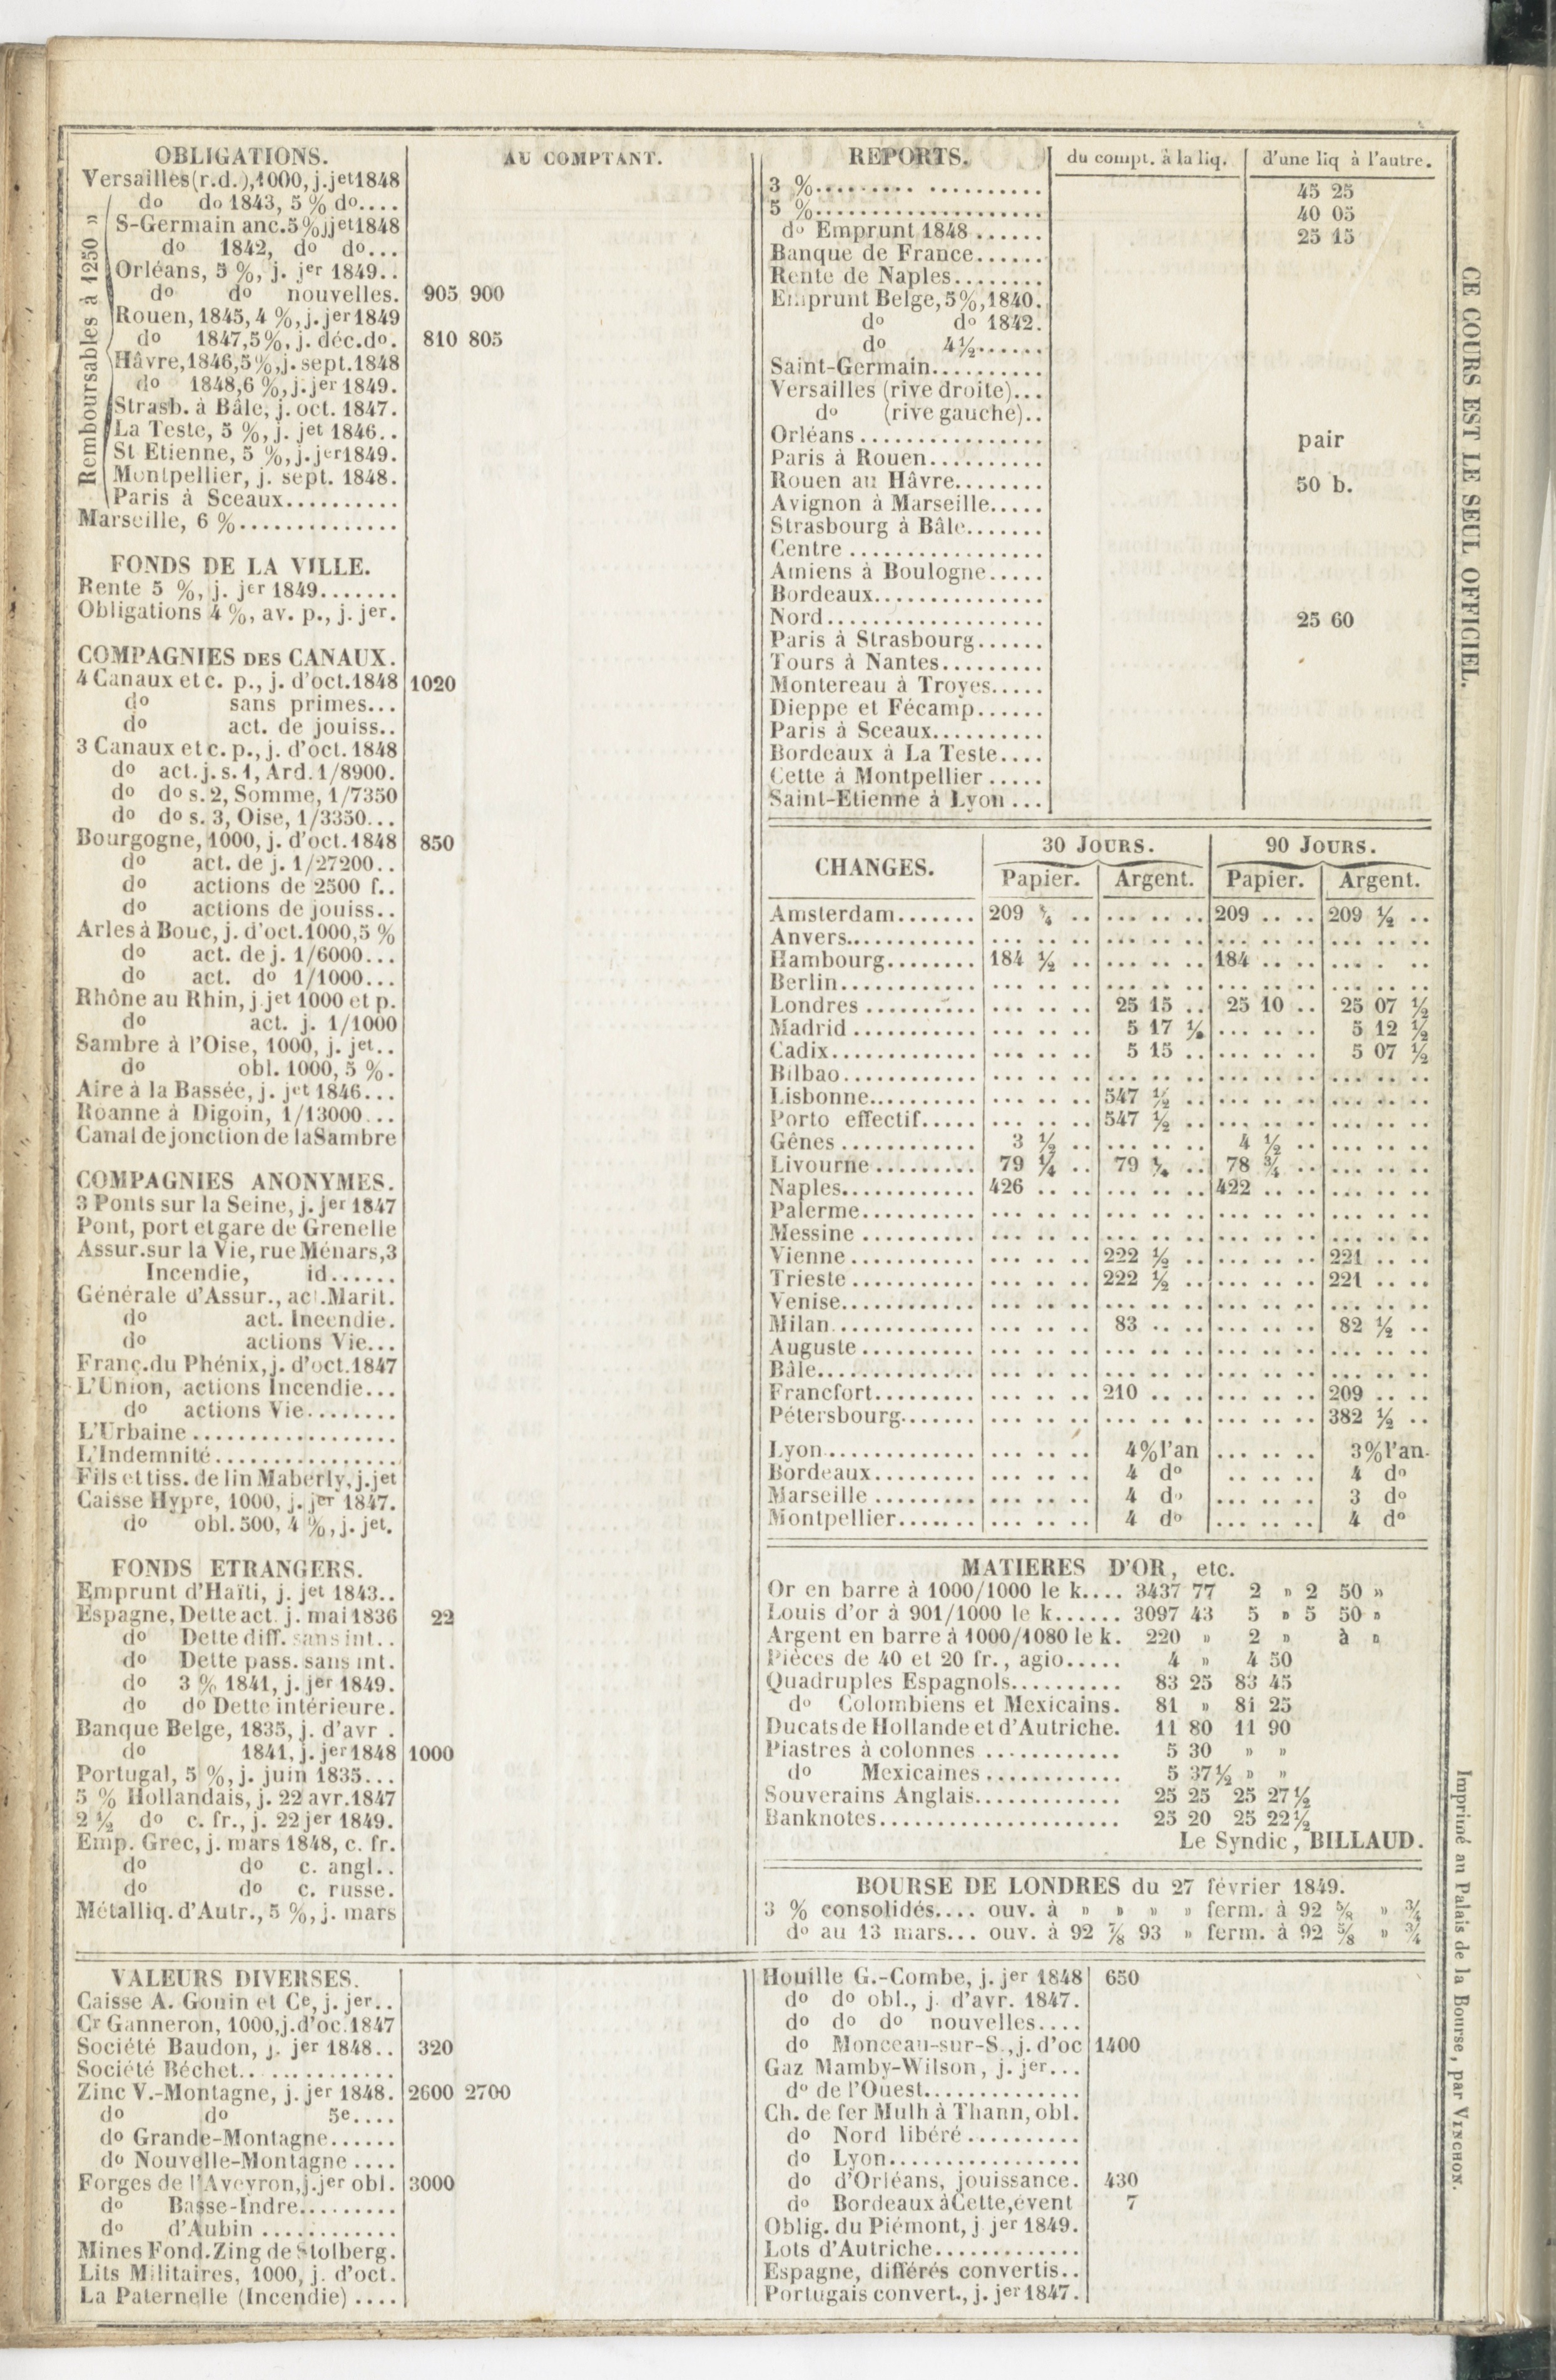 OBLIGATIONS. AU COMPTANT.
Versailles(r.d.),1000, j.jet1848
do do 1843, 5 % do....
Remboursables à 1250 »
S-Germain anc.5%jjet1848
do 1842, do do...
Orléans, 5 %, j. jer 1849..
do do nouvelles. 905 900
Rouen, 1845, 4 %, j. jer 1849
do 1847, 5%, j. déc. do. 810 805
Hâvre, 1846, 5%, j. sept. 1848
do 1848, 6 %, j. jer 1849.
Strasb. à Bâle, j. oct. 1847.
La Teste, 5 %, j. jet 1846..
St Etienne, 5 %, j. jer 1849.
Montpellier, j. sept. 1848.
Paris à Sceaux..........
Marseille, 6 %..............
FONDS DE LA VILLE.
Rente 5 %, j. jer 1849.......
Obligations 4 %, av. p., j. jer.
COMPAGNIES DES CANAUX.
4 Canaux et c. p., j. d'oct. 1848 1020
do sans primes...
do act. de jouiss..
3 Canaux et c. p., j. d'oct. 1848
do act. j. s. 1, Ard. 1/8900.
do do s. 2, Somme, 1/7350
do do s. 3, Oise, 1/3350...
Bourgogne, 1000, j. d'oct. 1848 850
do act. de j. 1/27200..
do actions de 2500 f..
do actions de jouiss..
Arles à Bouc, j. d'oct. 1000, 5 %
do act. de j. 1/6000...
do act. do 1/1000...
Rhône au Rhin, j. jet 1000 et p.
do act. j. 1/1000
Sambre à l'Oise, 1000, j. jet..
do obl. 1000, 5 %.
Aire à la Bassée, j. jet 1846...
Roanne à Digoin, 1/13000...
Canal de jonction de la Sambre
COMPAGNIES ANONYMES.
3 Ponts sur la Seine, j. jer 1847
Pont, port et gare de Grenelle
Assur. sur la Vie, rue Ménars, 3
Incendie, id......
Générale d'Assur., act. Marit.
do act. Incendie.
do actions Vie...
Franç. du Phénix, j. d'oct. 1847
L'Union, actions Incendie...
do actions Vie........
L'Urbaine..................
L'Indemnité................
Fils et tiss. de lin Maberly, j. jet
Caisse Hypre, 1000, j. jer 1847.
do obl. 500, 4 %, j. jet.
FONDS ETRANGERS.
Emprunt d'Haïti, j. jet 1843..
Espagne, Dette act. j. mai 1836 22
do Dette diff. sans int..
do Dette pass. sans int.
do 3 % 1841, j. jer 1849.
do do Dette intérieure.
Banque Belge, 1835, j. d'avr .
do 1841, j. jer 1848 1000
Portugal, 5 %, j. juin 1835...
5 % Hollandais, j. 22 avr. 1847
2 ½ do c. fr., j. 22 jer 1849.
Emp. Grec, j. mars 1848, c. fr.
do do c. angl..
do do c. russe.
Métalliq. d'Autr., 5 %, j. mars
REPORTS. du compt. à la liq. d'une liq à l'autre.
3 %................... 45 25
5 %................... 40 05
do Emprunt 1848...... 25 15
Banque de France......
Rente de Naples........
Emprunt Belge, 5%, 1840.
do do 1842.
do 4½......
Saint-Germain..........
Versailles (rive droite)...
do (rive gauche)..
Orléans................ pair
Paris à Rouen..........
Rouen au Hâvre........ 50 b.
Avignon à Marseille.....
Strasbourg à Bâle.......
Centre.................
Amiens à Boulogne.....
Bordeaux...............
Nord................... 25 60
Paris à Strasbourg......
Tours à Nantes.........
Montereau à Troyes.....
Dieppe et Fécamp......
Paris à Sceaux..........
Bordeaux à La Teste....
Cette à Montpellier.....
Saint-Etienne à Lyon...
CHANGES. 30 JOURS. 90 JOURS.
Papier. Argent. Papier. Argent.
Amsterdam....... 209 ¼ .. ... .. .. 209 .. .. 209 ½ ..
Anvers............ ... .. .. ... .. .. ... .. .. ... .. ..
Hambourg........ 184 ½ .. ... .. .. 184 .. .. .... ..
Berlin............ ... .. .. ... .. .. ... .. .. ... .. ..
Londres.......... ... .. .. 25 15 .. 25 10 .. 25 07 ½
Madrid........... ... .. .. 5 17 ½ ... .. .. 5 12 ½
Cadix............. ... .. .. 5 15 .. ... .. .. 5 07 ½
Bilbao............ ... .. .. ... .. .. ... .. .. ... .. ..
Lisbonne.......... ... .. .. 547 ½ .. ... .. .. ... .. ..
Porto effectif..... ... .. .. 547 ½ .. ... .. .. ... .. ..
Gênes............ 3 ½ .. ... .. .. 4 ½ .. ... .. ..
Livourne......... 79 ¼ .. 79 ¼ .. 78 ¾ .. ... .. ..
Naples............ 426 .. .. ... .. .. 422 .. .. ... .. ..
Palerme.......... ... .. .. ... .. .. ... .. .. ... .. ..
Messine.......... ... .. .. ... .. .. ... .. .. ... .. ..
Vienne........... ... .. .. 222 ½ .. ... .. .. 221 .. ..
Trieste........... ... .. .. 222 ½ .. ... .. .. 221 .. ..
Venise............ ... .. .. ... .. .. ... .. .. ... .. ..
Milan............. ... .. .. 83 .. .. ... .. .. 82 ½ ..
Auguste.......... ... .. .. ... .. .. ... .. .. ... .. ..
Bâle.............. ... .. .. ... .. .. ... .. .. ... .. ..
Francfort......... ... .. .. 210 .. .. ... .. .. 209 .. ..
Pétersbourg....... ... .. .. ... .. .. ... .. .. 382 ½ ..
Lyon............. ... .. .. 4%l'an ... .. .. 3%l'an.
Bordeaux......... ... .. .. 4 do .. .. .. 4 do
Marseille......... ... .. .. 4 do ... .. .. 3 do
Montpellier....... ... .. .. 4 do ... .. .. 4 do
MATIERES D'OR, etc.
Or en barre à 1000/1000 le k.... 3437 77 2 » 2 50 »
Louis d'or à 901/1000 le k...... 3097 43 5 » 5 50 »
Argent en barre à 1000/1080 le k. 220 » 2 » à »
Pièces de 40 et 20 fr., agio..... 4 » 4 50
Quadruples Espagnols.......... 83 25 83 45
do Colombiens et Mexicains. 81 » 81 25
Ducats de Hollande et d'Autriche. 11 80 11 90
Piastres à colonnes............ 5 30 » »
do Mexicaines............ 5 37½ » »
Souverains Anglais............. 25 25 25 27½
Banknotes..................... 25 20 25 22½
Le Syndic, BILLAUD.
BOURSE DE LONDRES du 27 février 1849.
3 % consolidés.... ouv. à » » » » ferm. à 92 ⅝ » ¾
do au 13 mars... ouv. à 92 ⅞ 93 » ferm. à 92 ⅝ » ¾
VALEURS DIVERSES.
Caisse A. Gouin et Ce, j. jer..
Cr Ganneron, 1000, j. d'oc. 1847
Société Baudon, j. jer 1848.. 320
Société Béchet..............
Zinc V.-Montagne, j. jer 1848. 2600 2700
do do 5e....
do Grande-Montagne......
do Nouvelle-Montagne....
Forges de l'Aveyron, j. jer obl. 3000
do Basse-Indre.........
do d'Aubin............
Mines Fond. Zing de Stolberg.
Lits Militaires, 1000, j. d'oct.
La Paternelle (Incendie)....
Houille G.-Combe, j. jer 1848 650
do do obl., j. d'avr. 1847.
do do do nouvelles....
do Monceau-sur-S., j. d'oc 1400
Gaz Mamby-Wilson, j. jer...
do de l'Ouest..............
Ch. de fer Mulh à Thann, obl.
do Nord libéré..........
do Lyon.................
do d'Orléans, jouissance. 430
do Bordeaux à Cette, évent 7
Oblig. du Piémont, j jer 1849.
Lots d'Autriche.............
Espagne, différés convertis..
Portugais convert., j. jer 1847.
CE COURS EST LE SEUL OFFICIEL.
Imprimé au Palais de la Bourse, par VINCHON.